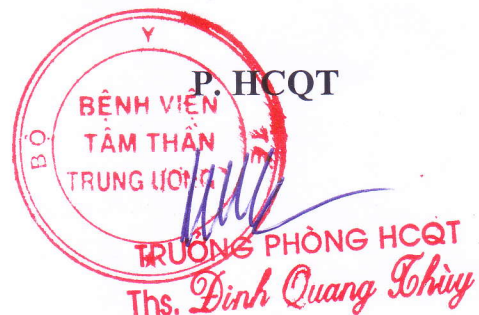 P. HCQT
BỘ Y TẾ
BỆNH VIỆN
TÂM THẦN
TRUNG ƯƠNG
TRƯỞNG PHÒNG HCQT
Ths. Đinh Quang Thùy